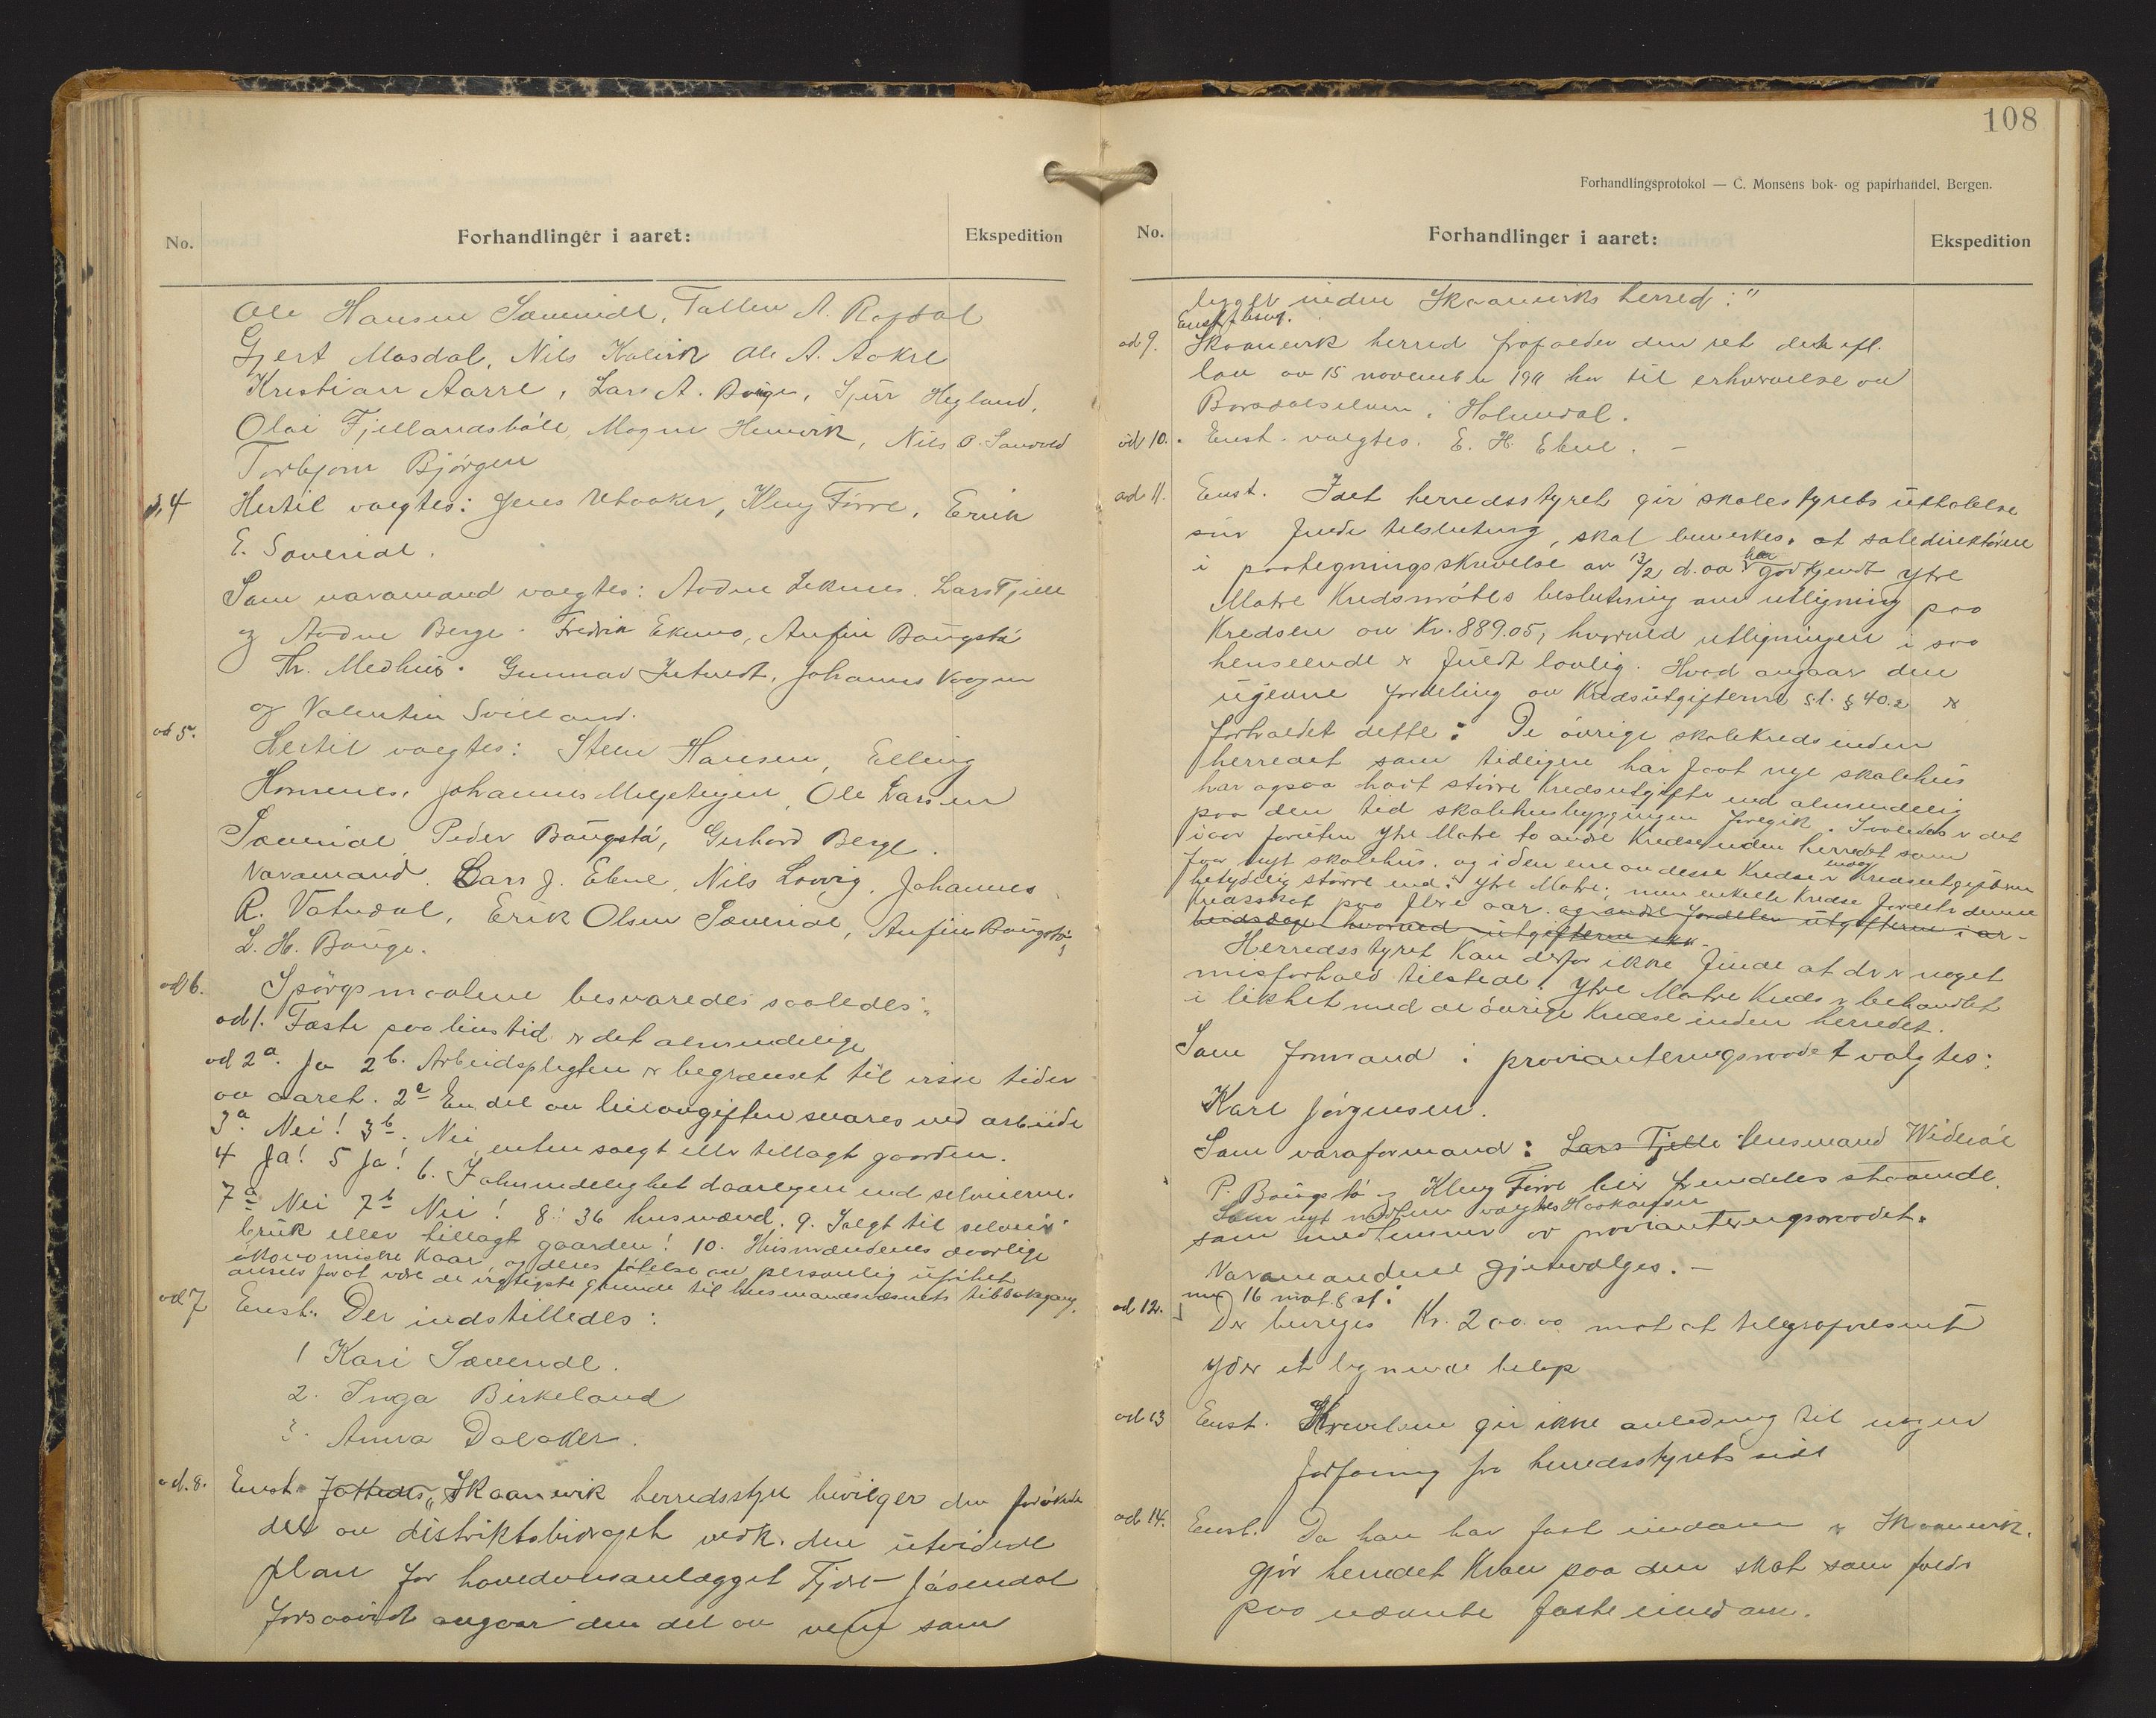 No.
Forhandlinger i aaret:
Ekspedition
Ole Hansen Sævereide, Tallev A. Rafdal
Gjert Masdal, Nils Kalvik Ole A. Aakre
Kristian Aarre, Lars A. Bauge, Sjur Hegland,
Olai Fjellandsbøle, Magne Hemvik, Nils O. Sandvold
Torbjørn Bjørgen
ad 4
Hertil valgtes: Jens Utaaker, Kleng Førre, Erik
E. Sævereide.
Som varamænd valgtes: Aadne Leknes. Lars Tjelle
og Aadne Berge. Fredrik Ekmo, Anfin Baugstø
Th. Medhus. Gunnar Indtvedt, Johannes Vaagen
og Valentin Svilland.
ad 5.
Hertil valgtes: Steen Hansen, Elling
Hornenes, Johannes Meljeteigen, Ole Larsen
Sævereide Peder Baugstø, Gerhard Berge.
Varamænd. Lars J. Ebne, Nils Lovvig, Johannes
R. Vatndal, Erik Olsen Sævereide, Anfin Baugstø,
L. H. Bauge.
ad 6.
Spørgsmaalene besvaredes saaledes:
ad 1. Fæste paa livstid er det almindelige
ad 2a. Ja 2b. Arbeidspligten er begrænset til visse tider
av aaret. 2c En del av leieavgiften svares ved arbeide
3a. Nei! 3b. Nei, enten solgt eller tillagt gaarden.
4 Ja! 5 Ja! 6. I almindelighet daarligere end selveierne.
7a Nei 7b Nei! 8: 36 husmænd. 9. Solgt til selveier
bruk eller tillagt gaarden! 10. Husmændenes daarlige
økonomiske kaar og deres følelse av personlig ufrihet
ansees for at være de vigtigste grunde til husmandsvæsnets tilbakegang.
ad 7
Enst. Der indstilledes:
1 Kari Sævereide.
2. Inga Birkeland
3. Anna Dalaker.
ad. 8.
Enst. Fattedes „Skaanevik herredsstyre bevilger den forøkede
del av distriktsbidraget vedk. den utvidede
plan for hovedveianlægget Fjære – Jøsendal
forsaavidt angaar den del av veien som
108
Forhandlingsprotokol — C. Monsens bok- og papirhandel, Bergen.
No.
Forhandlinger i aaret:
Ekspedition
ligger inden Skaaneviks herred."
Enst. besl.
ad 9.
Skaanevik herred frafalder den ret det efl.
lov av 15 november 1911 har til erhvervelse av
Boradalselven i Holmedal.
ad 10.
Enst. valgtes. E. H. Ebne. –
ad 11.
Enst. Idet herredsstyret gir skolestyrets uttalelse
sin fulde tilslutning, skal bemerkes, at skoledirektøren
i paategningsskrivelse av 13/2 d. aa. har godkjendt Ytre
Matre Kredsmøtes beslutning om utligning paa
Kredsen av Kr. 889.05, hvorved utligningen i saa
henseende er fuldt lovlig. Hvad angaar den
ujevne fordeling av Kredsutgifterne s.l. § 40.2 er
forholdet dette: De øvrige skolekreds inden
herredet som tidligere har faat nye skolehus
har ogsaa havt større Kredsutgifter end almindelig
paa den tid skolehusbygningen foregik. Saaledes er det
iaar foruten Ytre Matre to andre Kredse inden herredet som
faar nyt skolehus, og i den ene av disse Kredse er Kredsutgiftene endog
betydelig større end i Ytre Matre; men enkelte Kredse fordeler denne
kredsskat paa flere aar. og andre fordeler utgifterne i ar-
beidsdage hvorved utgifterne ikke
Herredsstyret kan derfor ikke finde at der er noget
misforhold tilstede. Ytre Matre Kreds er behandlet
i likhet med de øvrige Kredse inden herredet.
Som formand i provianteringsraadet valgtes:
Karl Jørgensen.
Som varaformand: Lars Tjelle lensmand Widerøe
P. Baugstø og Kleng Førre blir fremdeles staaende.
Som nyt medlem valgtes Haakonsen
som medlemmer av provianteringsraadet.
Varamændene gjenvalges. –
med 16 mot 8 st.:
ad 12.
Der bevilges Kr. 200.00 mot at telegrafvæsenet
yder et lignende beløp
ad 13
Enst. Skrivelsen gir ikke anledning til nogen
forføining fra herredsstyrets side
ad 14.
Enst. Da han har fast eiendom i Skaanevik,
gjør herredet krav paa den skat som falder
paa nævnte faste eiendom.